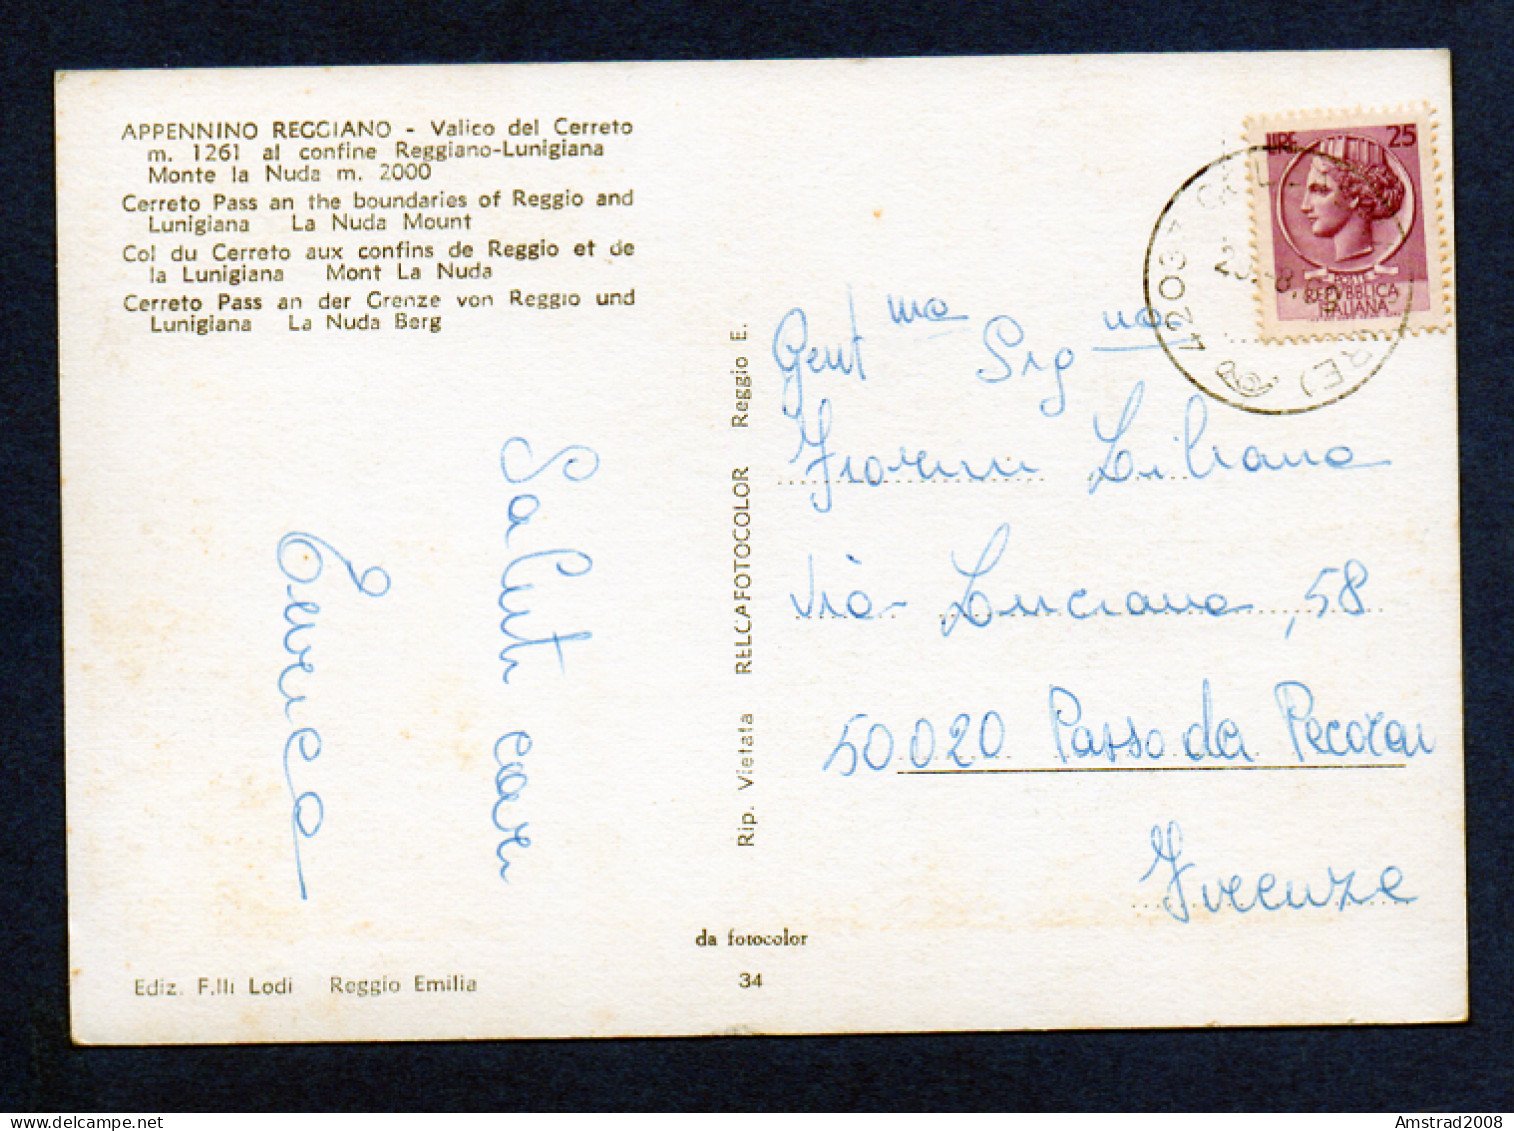 APPENNINO REGGIANO - Valico del Cerreto
m. 1261 al confine Reggiano-Lunigiana
Monte la Nuda m. 2000
Cerreto Pass an the boundaries of Reggio and
Lunigiana La Nuda Mount
Col du Cerreto aux confins de Reggio et de
la Lunigiana Mont La Nuda
Cerreto Pass an der Grenze von Reggio und
Lunigiana La Nuda Berg
Saluti cari
Enrica
Ediz. F.lli Lodi Reggio Emilia
Rip. Vietata RELCAFOTOCOLOR Reggio E.
da fotocolor
34
LIRE 25
POSTE
REPVBBLICA
ITALIANA
42037 (RE)
Gent ma Sig na
Fiorenni Liliana
Via Luciana, 58
50020 Passo da Pecorai
Firenze
Amstrad2008